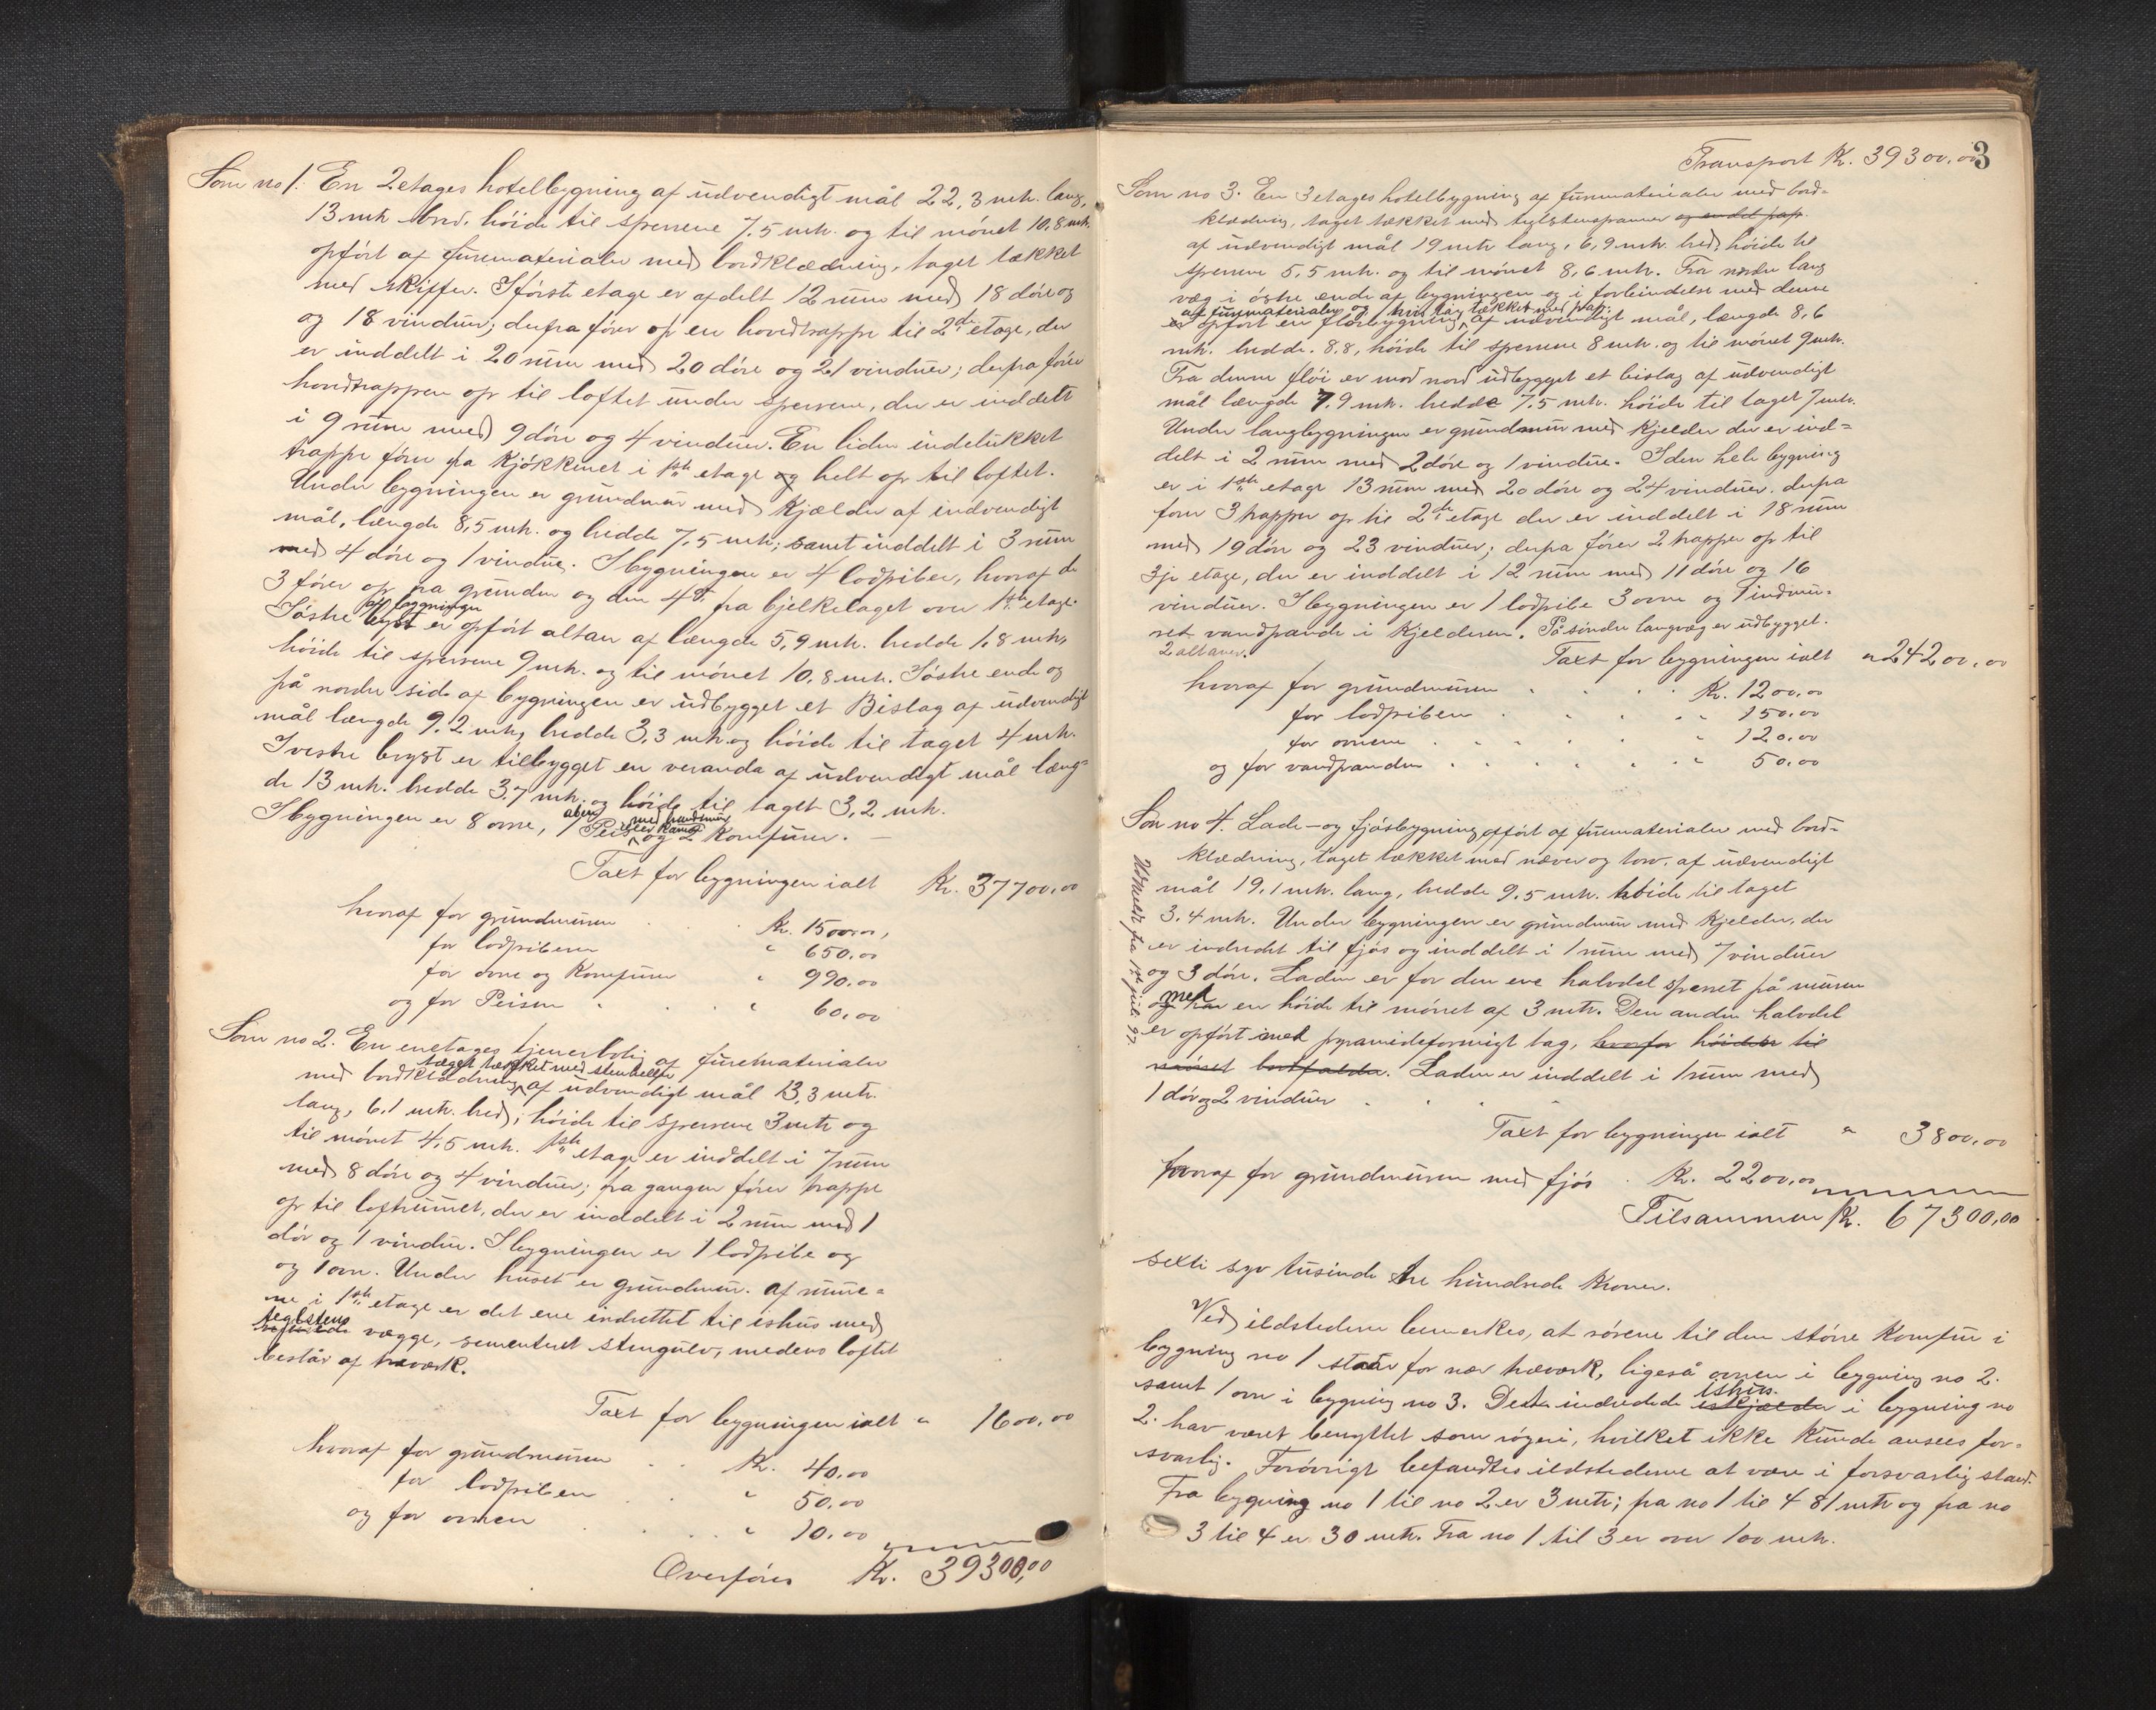 Som no 1. En 2 etages hotelbygning af udvendigt mål 22,3 mtr. lang,
13 mtr bred, höide til sperrene 7.5 mtr. og til mönet 10.8 mtr.
opfört af furumaterialer med bordklædning, taget tækket
med skiffer. I förste etage er afdelt 12 rum med 18 döre og
og 18 vinduer; derfra förer op en hovedtrappe til 2de etage, der
er inddelt i 20 rum med 20 döre og 21 vinduer; derfra förer
hovedtrappen op til loftet under sperrene, der er inddelt
i 9 rum med 9 döre og 4 vinduer. En liden indelukket
trappe förer fra kjökkenet i 1ste etage og helt op til loftet.
Under bygningen er grundmur med kjælder af indvendigt
mål, længde 8,5 mtr. og bredde 7,5 mtr; samt inddelt i 3 rum
med 4 döre og 1 vindue. I bygningen er 4 lodpiber, hvoraf de
3 förer op fra grunden og den 4de fra bjelkelaget over 1ste etage.
af bygningen
I östre bryst er opfört altan af længde 5,9 mtr. bredde 1,8 mtr,
höide til sperrene 9 mtr. og til mönet 10,8 mtr. I östre ende og
på nordre side af bygningen er udbygget et Bislag af udvendigt
mål længde 9,2 mtr, bredde 3,3 mtr. og höide til taget 4 mtr.
I vestre bryst er tilbygget en veranda af udvendigt mål læng-
de 13 mtr. bredde 3,7 mtr. og höide til taget 3,2 mtr.
åben med grundmur
I bygningen er 8 ovne, 1 Peis og 2 komfurer.
Taxt for bygningen ialt Kr. 37700,00
hvoraf for grundmuren Kr. 1500,00,
for lodpiberne " 650.00
for ovne og komfurer " 990.00
og for Peisen " 60.00
Som no 2. En enetages tjenerbolig af furematerialer
taget tækket med stenheller
med bordklædning, af udvendigt mål 13,3 mtr.
lang, 6,1 mtr. bred; höide til sperrene 3 mtr og
til mönet 4,5 mtr. 1ste etage er inddelt i 7 rum
med 8 döre og 4 vinduer; fra gangen förer trappe
op til loftrummet, der er inddelt i 2 rum med 1
dör og 1 vindue. I bygningen er 1 lodpibe og
og 1 ovn. Under huset er grundmur. Af rumme-
ne i 1ste etage er det ene indrettet til ishus med
teglstens
vægge, sementeret stengulv, medens loftet
består af træværk.
Taxt for bygningen ialt " 1600,00
hvoraf for grundmuren Kr. 40,00
for lodpiben " 50.00
og for ovnen " 10.00
Overföres Kr. 39300,00
3
Transport Kr. 39300,00
Som no 3. En 3 etages hotelbygning af furumaterialer med bord-
klædning, taget tækket med teglstenspanner og endel pap.
af udvendigt mål 19 mtr lang, 6,9 mtr. bred, höide til
sperrene 5,5 mtr. og til mönet 8,6 mtr. Fra nordre lang
væg i östre ende af bygningen og i forbindelse med denne
af furumaterialer og hvis tag tækket med pap.
er opfört en flöibygning, af udvendigt mål, længde 8,6
mtr. bredde. 8.8, höide til sperrene 8 mtr. og til mönet 9 mtr.
Fra denne flöi er mod nord udbygget et bislag af udvendigt
mål længde 7.9 mtr. bredde 7,5 mtr. höide til taget 7 mtr.
Under langbygningen er grundmur med kjelder der er ind-
delt i 2 rum med 2 döre og 1 vindue. I den hele bygning
er i 1ste etage 13 rum med 20 döre og 24 vinduer. derfra
förer 3 trapper op til 2de etage der er inddelt i 18 rum
med 19 döre og 23 vinduer; derfra förer 2 trapper op til
3je etage, der er inddelt i 12 rum med 11 döre og 16
vinduer. I bygningen er 1 lodpibe 3 ovne og 1 indmu-
ret vandpande i kjelderen. På söndre langvæg er udbygget.
2 altaner.
Taxt for bygningen ialt " 24200,00
hvoraf for grundmuren Kr. 1200,00
for lodpiben " 150.00
for ovnene " 120.00
og for vandpanden " 50.00
Som no 4. Lade- og fjösbygning opfört af furumaterialer med bord-
klædning, taget tækket med næver og torv. af udvendigt
mål 19,1 mtr. lang, bredde 9.5 mtr. höide til taget
3.4 mtr. Under bygningen er grundmur med kjelder, der
er indredet til fjös og inddelt i 1 rum med 7 vinduer
og 3 döre. Laden er for den ene halvdel sperret på muren
med
og har en höide til mönet af 3 mtr. Den anden halvdel
er opfört med pyramideformigt tag, hvorfor höiden til
mönet bortfalder. Laden er inddelt i 1 rum med
1 dör og 2 vinduer
Udmeldt fra 1ste juli 97.
Taxt for bygningen ialt " 3800,00
hvoraf for grundmuren med fjös Kr. 2200,00
Tilsammen Kr. 67300,00
sexti syv tusinde tre hundrede kroner.
Ved ildstederne bemerkes, at rörene til den större komfur i
bygning no 1 står for nær træværk, ligeså ovnen i bygning no 2.
samt 1 ovn i bygning no 3. Dette indredede iskjælder i bygning no
ishus.
2. har været benyttet som rögeri, hvilket ikke kunde ansees for-
svarlig. Forövrigt befandtes ildstederne at være i forsvarlig stand.
Fra bygning no 1 til no 2 er 3 mtr; fra no 1 til 4 81 mtr og fra no
3 til 4 er 30 mtr. Fra no 1 til 3 er over 100 mtr.